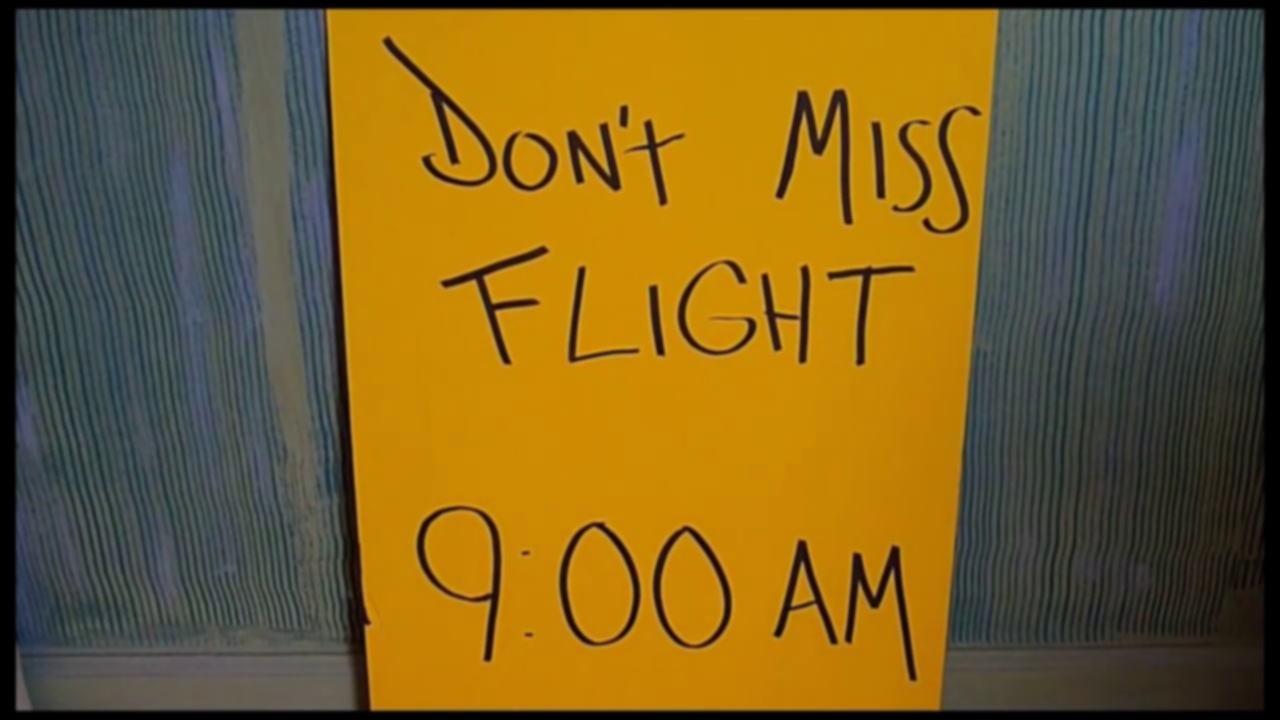 DON'T MISS
FLIGHT
9:00 AM